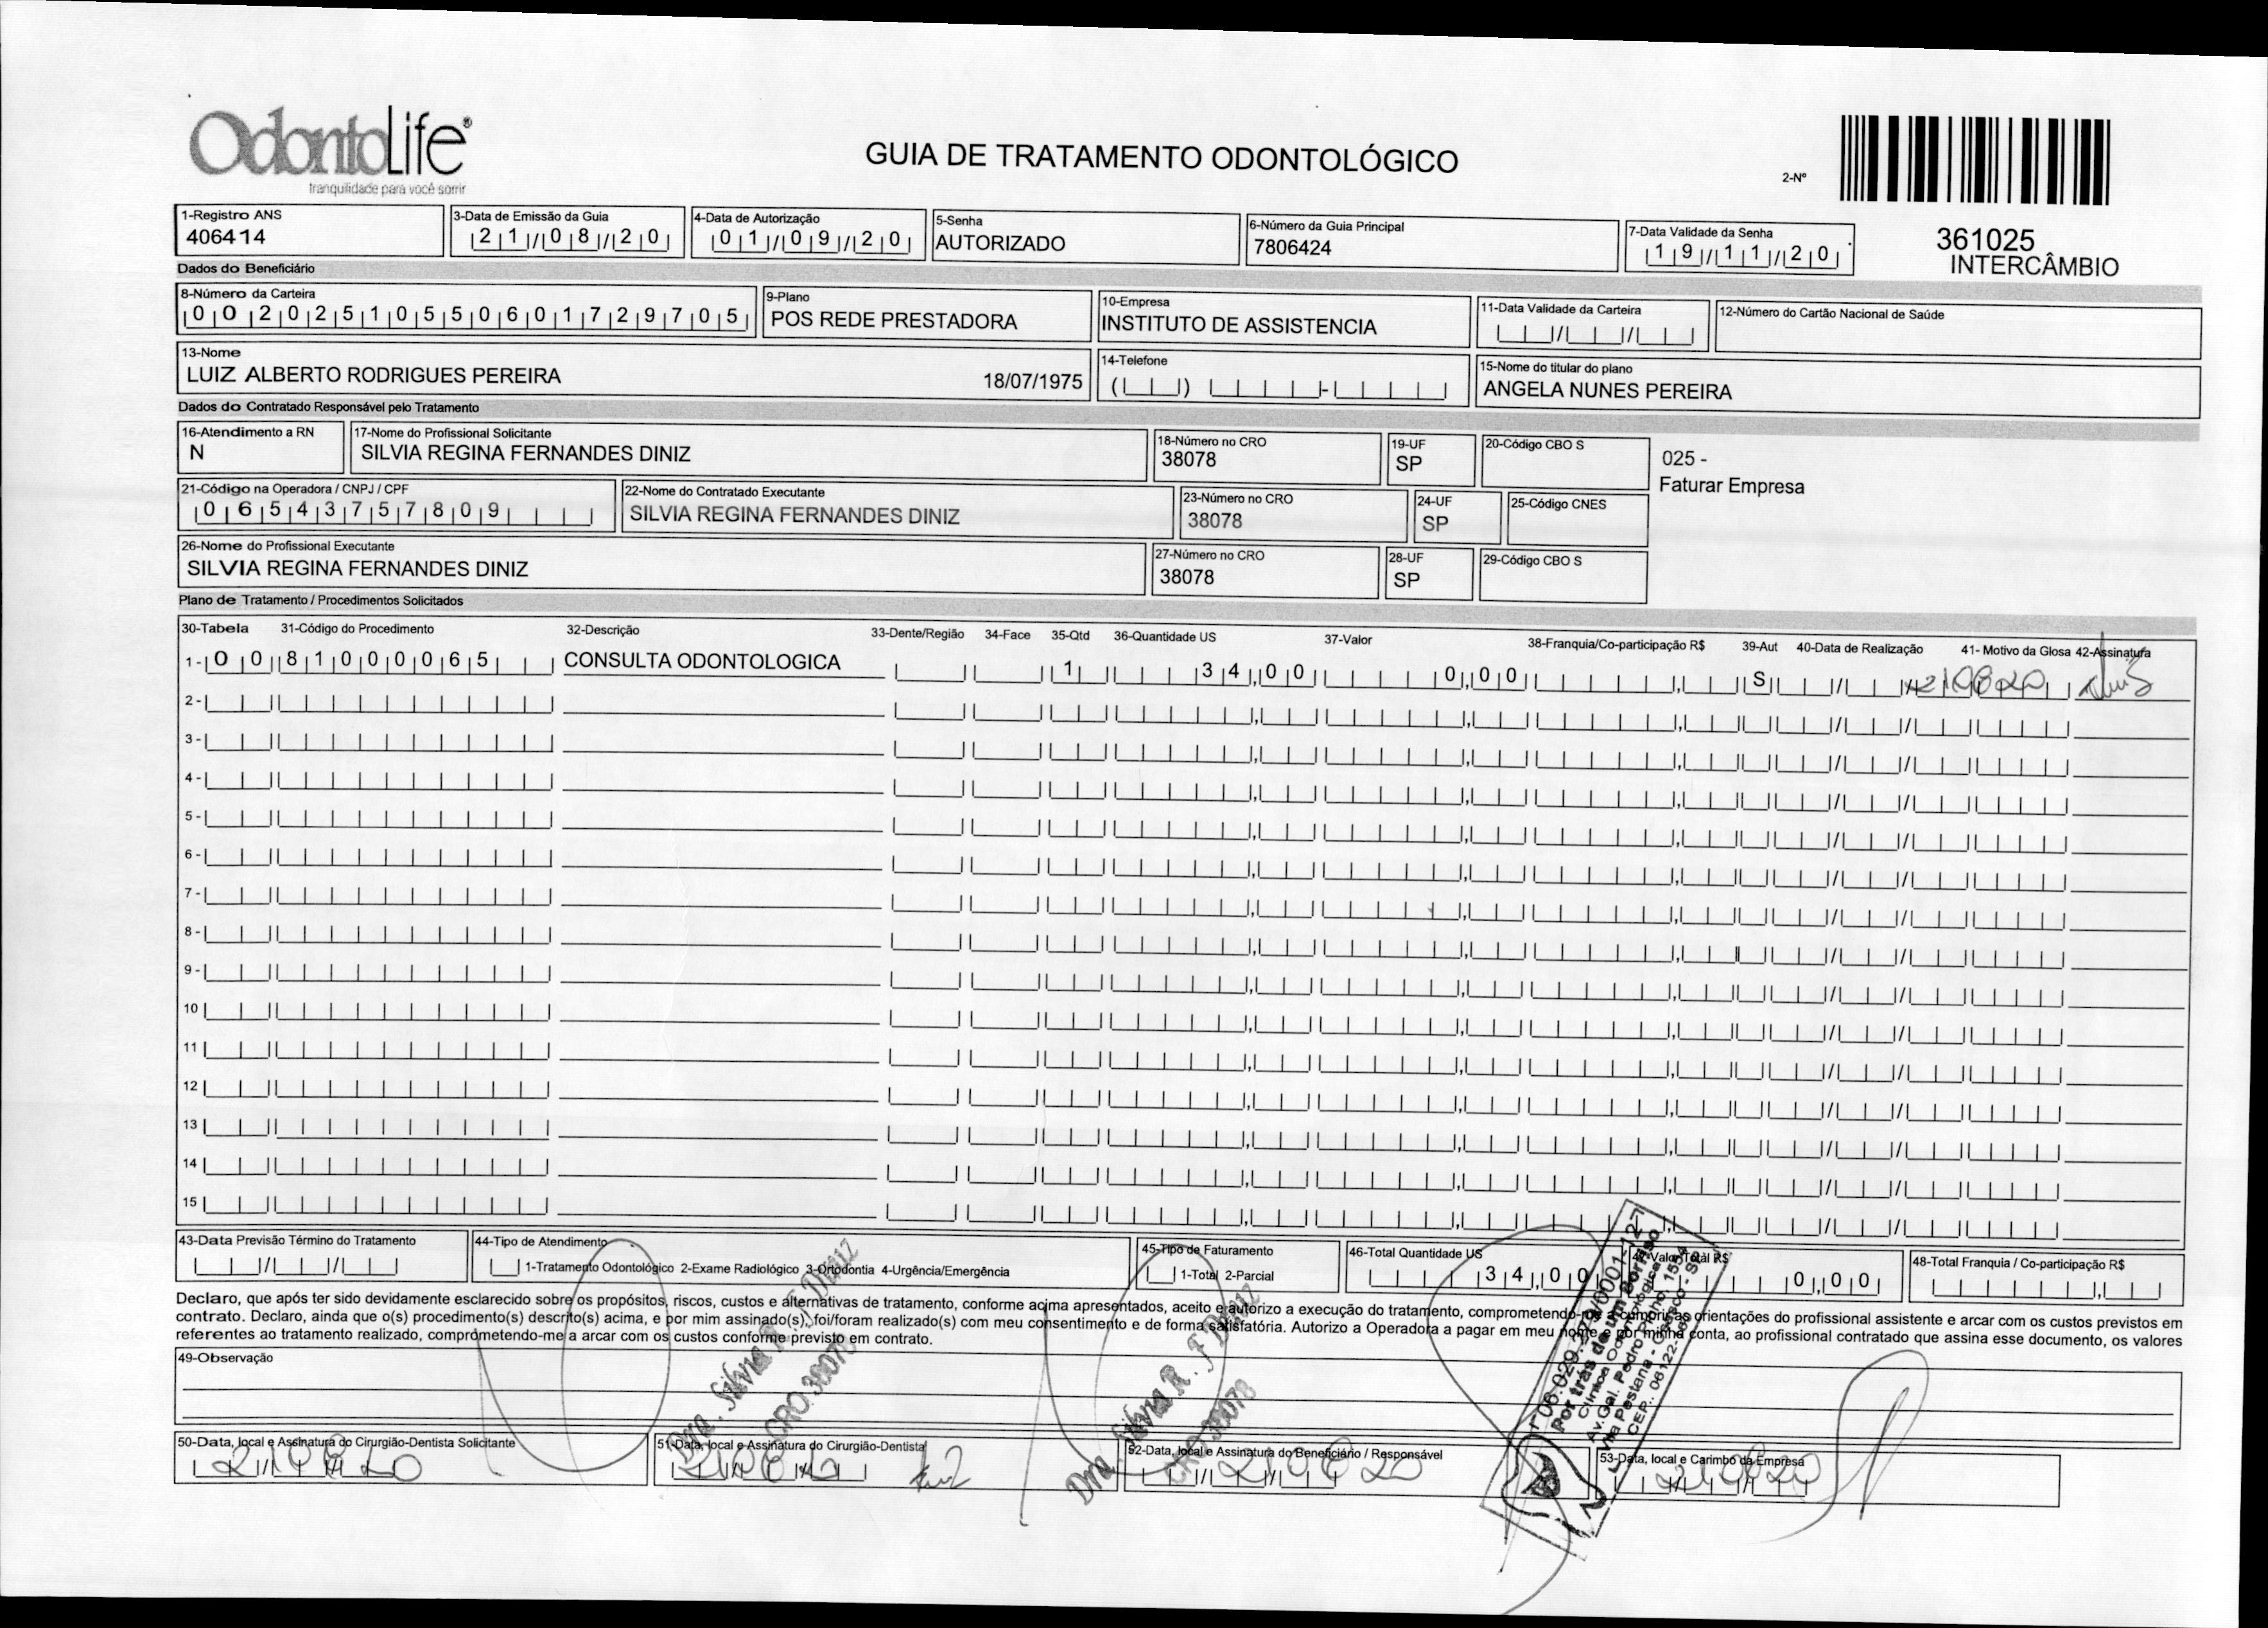 OdontoLife®
tranquilidade para você sorrir
GUIA DE TRATAMENTO ODONTOLÓGICO
2-Nº
361025
INTERCÂMBIO
1-Registro ANS
406414
3-Data de Emissão da Guia
21/08/20
4-Data de Autorização
01/09/20
5-Senha
AUTORIZADO
6-Número da Guia Principal
7806424
7-Data Validade da Senha
19/11/20
Dados do Beneficiário
8-Número da Carteira
00202510550601729705
9-Plano
POS REDE PRESTADORA
10-Empresa
INSTITUTO DE ASSISTENCIA
11-Data Validade da Carteira
12-Número do Cartão Nacional de Saúde
13-Nome
LUIZ ALBERTO RODRIGUES PEREIRA 18/07/1975
14-Telefone
15-Nome do titular do plano
ANGELA NUNES PEREIRA
Dados do Contratado Responsável pelo Tratamento
16-Atendimento a RN
N
17-Nome do Profissional Solicitante
SILVIA REGINA FERNANDES DINIZ
18-Número no CRO
38078
19-UF
SP
20-Código CBO S
025 -
Faturar Empresa
21-Código na Operadora / CNPJ / CPF
06543757809
22-Nome do Contratado Executante
SILVIA REGINA FERNANDES DINIZ
23-Número no CRO
38078
24-UF
SP
25-Código CNES
26-Nome do Profissional Executante
SILVIA REGINA FERNANDES DINIZ
27-Número no CRO
38078
28-UF
SP
29-Código CBO S
Plano de Tratamento / Procedimentos Solicitados
30-Tabela 31-Código do Procedimento 32-Descrição 33-Dente/Região 34-Face 35-Qtd 36-Quantidade US 37-Valor 38-Franquia/Co-participação R$ 39-Aut 40-Data de Realização 41- Motivo da Glosa 42-Assinatura
1- 00 81000065 CONSULTA ODONTOLOGICA 1 34,00 0,00 S 210820
2-
3-
4-
5-
6-
7-
8-
9-
10
11
12
13
14
15
43-Data Previsão Término do Tratamento
44-Tipo de Atendimento
1-Tratamento Odontológico 2-Exame Radiológico 3-Ortodontia 4-Urgência/Emergência
45-Tipo de Faturamento
1-Total 2-Parcial
46-Total Quantidade US
34,00
47-Valor Total R$
0,00
48-Total Franquia / Co-participação R$
Declaro, que após ter sido devidamente esclarecido sobre os propósitos, riscos, custos e alternativas de tratamento, conforme acima apresentados, aceito e autorizo a execução do tratamento, comprometendo-me a cumprir as orientações do profissional assistente e arcar com os custos previstos em
contrato. Declaro, ainda que o(s) procedimento(s) descrito(s) acima, e por mim assinado(s), foi/foram realizado(s) com meu consentimento e de forma satisfatória. Autorizo a Operadora a pagar em meu nome e por minha conta, ao profissional contratado que assina esse documento, os valores
referentes ao tratamento realizado, comprometendo-me a arcar com os custos conforme previsto em contrato.
49-Observação
50-Data, local e Assinatura do Cirurgião-Dentista Solicitante
210820
51-Data, local e Assinatura do Cirurgião-Dentista
52-Data, local e Assinatura do Beneficiário / Responsável
210820
53-Data, local e Carimbo da Empresa
210820
Dra. Silvia R. F Diniz
CRO 38078
Dra. Silvia R. F Diniz
CRO 38078
Por trás de um Sorriso
Clínica Odontológica
Av. Gal. Pedro Pinho, 1554
Vila Pestana - Osasco - SP